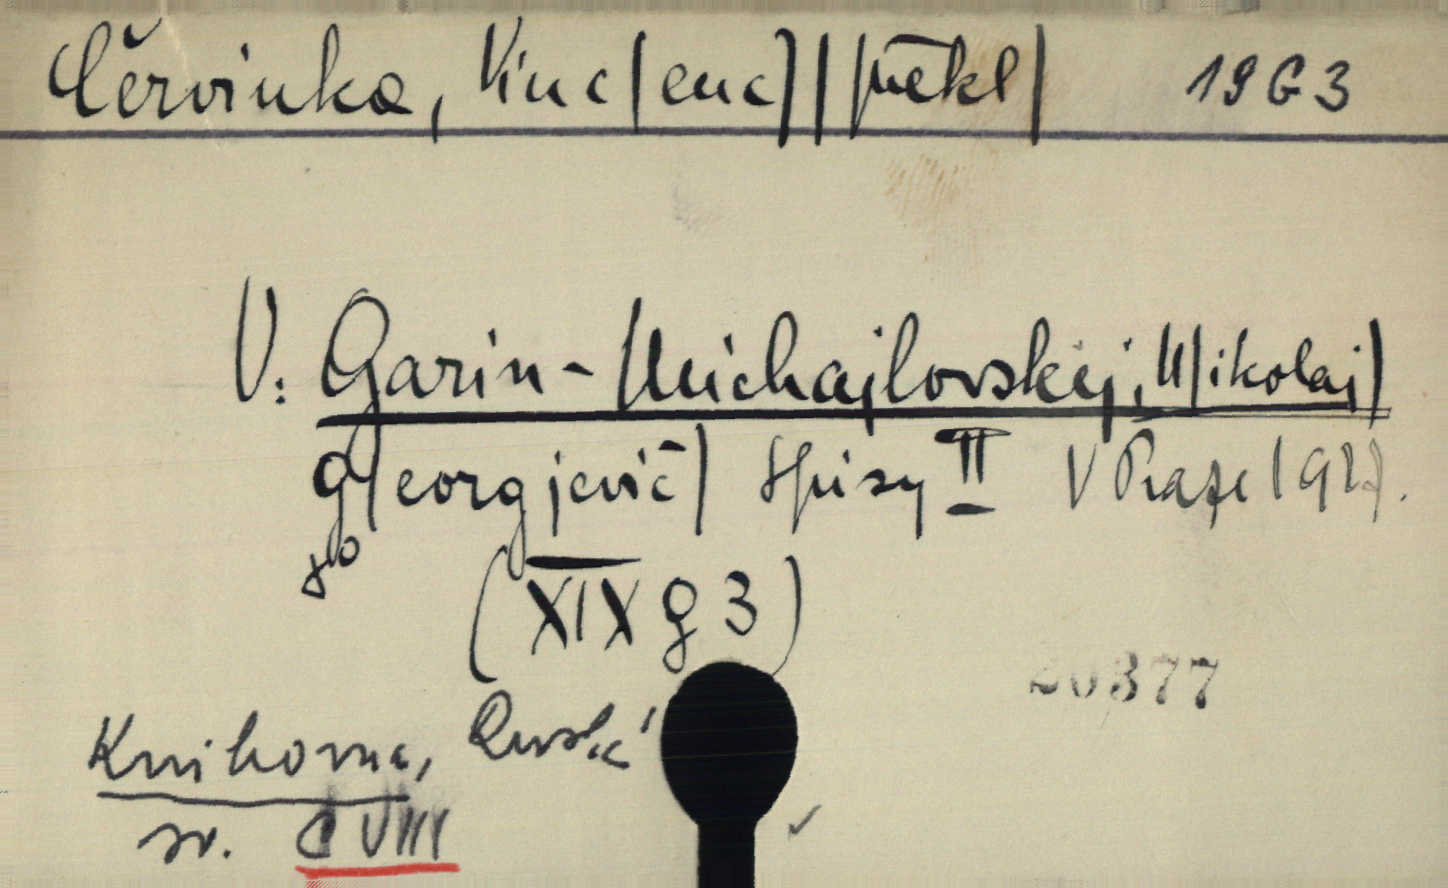 Červinka, Vinc(enc)] [překl] 19G3
V: Garin-Michajlovskij, N(ikolaj)
G(eorgjevič) Spisy II V Praze
(XIX g 3)
20377
Knihovna, Ruská
sv. CVIII